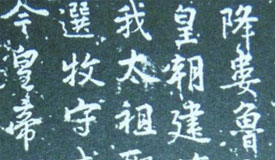 降婁魯
皇朝建
我太祖
選牧守
今皇帝